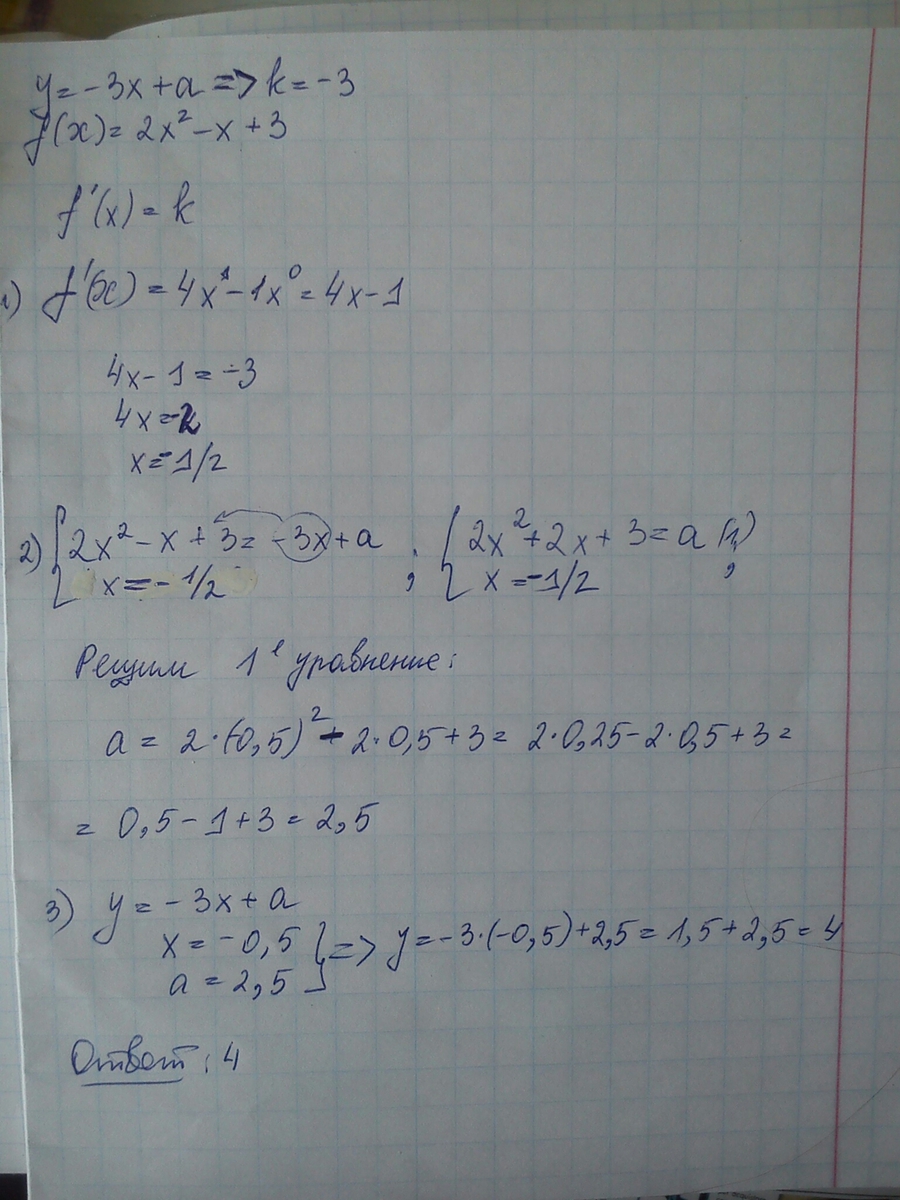 y = -3x + a => k = -3
f(x) = 2x² - x + 3
f'(x) = k
1) f'(x) = 4x¹ - 1x⁰ = 4x - 1
4x - 1 = -3
4x = -2
x = -1/2
2) { 2x² - x + 3 = -3x + a ; { 2x² + 2x + 3 = a (1)
x = -1/2 x = -1/2 ;
Решим 1е уравнение:
a = 2·(-0,5)² - 2·0,5 + 3 = 2·0,25 - 2·0,5 + 3 =
= 0,5 - 1 + 3 = 2,5
3) y = -3x + a
x = -0,5 } => y = -3·(-0,5) + 2,5 = 1,5 + 2,5 = 4
a = 2,5
Ответ: 4